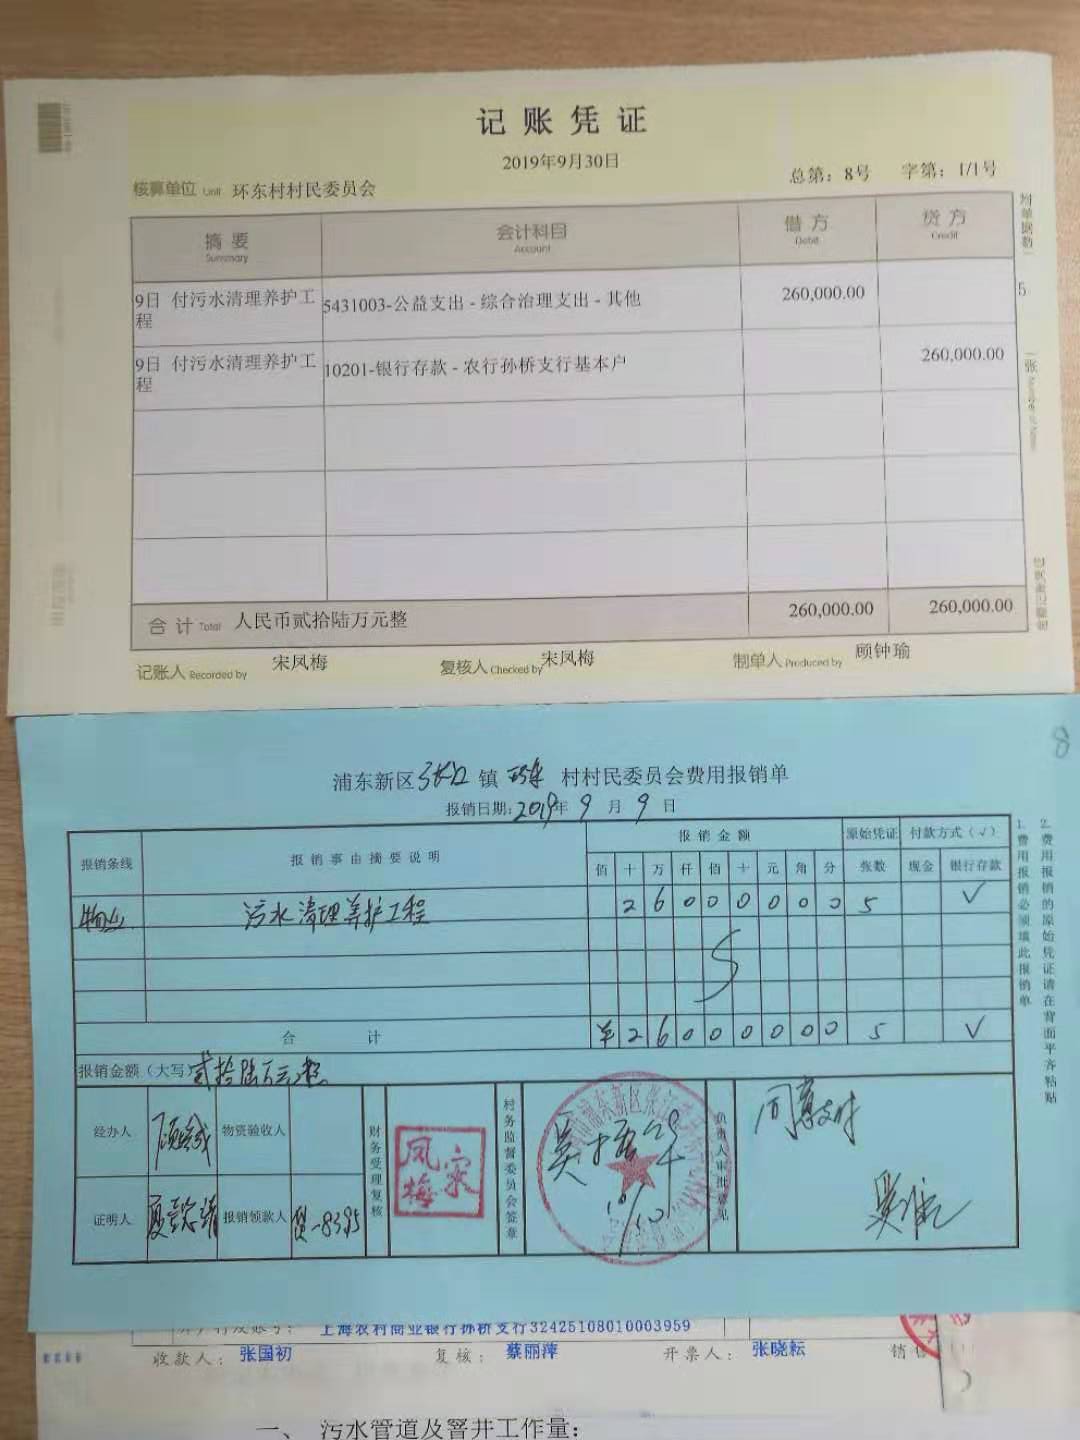 记账凭证
2019年9月30日
核算单位 Unit 环东村村民委员会
总第：8号 字第：1/1号
摘要 会计科目 借方 贷方
Summary Account Debit Credit
9日 付污水清理养护工程 5431003-公益支出-综合治理支出-其他 260,000.00
9日 付污水清理养护工程 10201-银行存款-农行孙桥支行基本户 260,000.00
合计 Total 人民币贰拾陆万元整 260,000.00 260,000.00
记账人 Recorded by 宋凤梅 复核人 Checked by 宋凤梅 制单人 Produced by 顾钟瑜
附单据数
5
张
8
浦东新区张江镇环东村村民委员会费用报销单
报销日期：2019年9月9日
报销条线 报销事由摘要说明 报销金额 原始凭证 付款方式（√）
佰 十 万 仟 佰 十 元 角 分 张数 现金 银行存款
污水清理养护工程 2 6 0 0 0 0 0 0 5 √
合计 ¥ 2 6 0 0 0 0 0 0 5 √
报销金额（大写）贰拾陆万元整
经办人 物资验收人
证明人 报销领款人 贸-8395
财务受理复核
凤梅宋
村务监督委员会签章
负责人审批意见
同意支付
1.费用报销必须填此报销单
2.费用报销的原始凭证请在背面平齐粘贴
开户行及账号：上海农村商业银行孙桥支行32425108010003959
收款人：张国初 复核：蔡丽萍 开票人：张晓耘 销售
一、污水管道及窨井工作量：